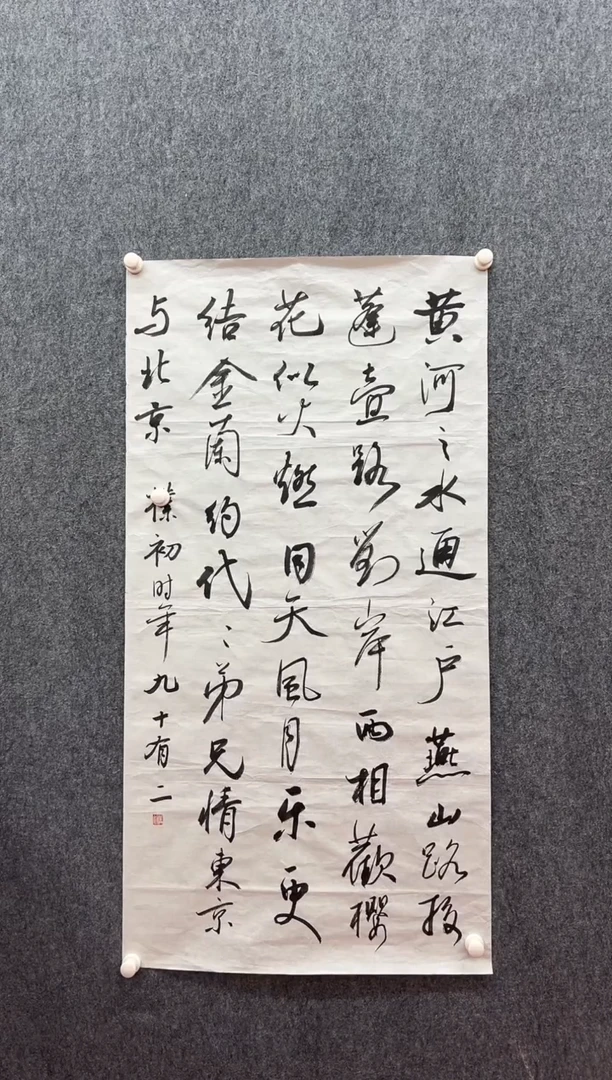 黄河之水通江戸燕山路接
蓬壺路對岸西相歡櫻
花似火燃同天風月乐更
结金蘭约代〻弟兄情東京
与北京
初时年九十有二